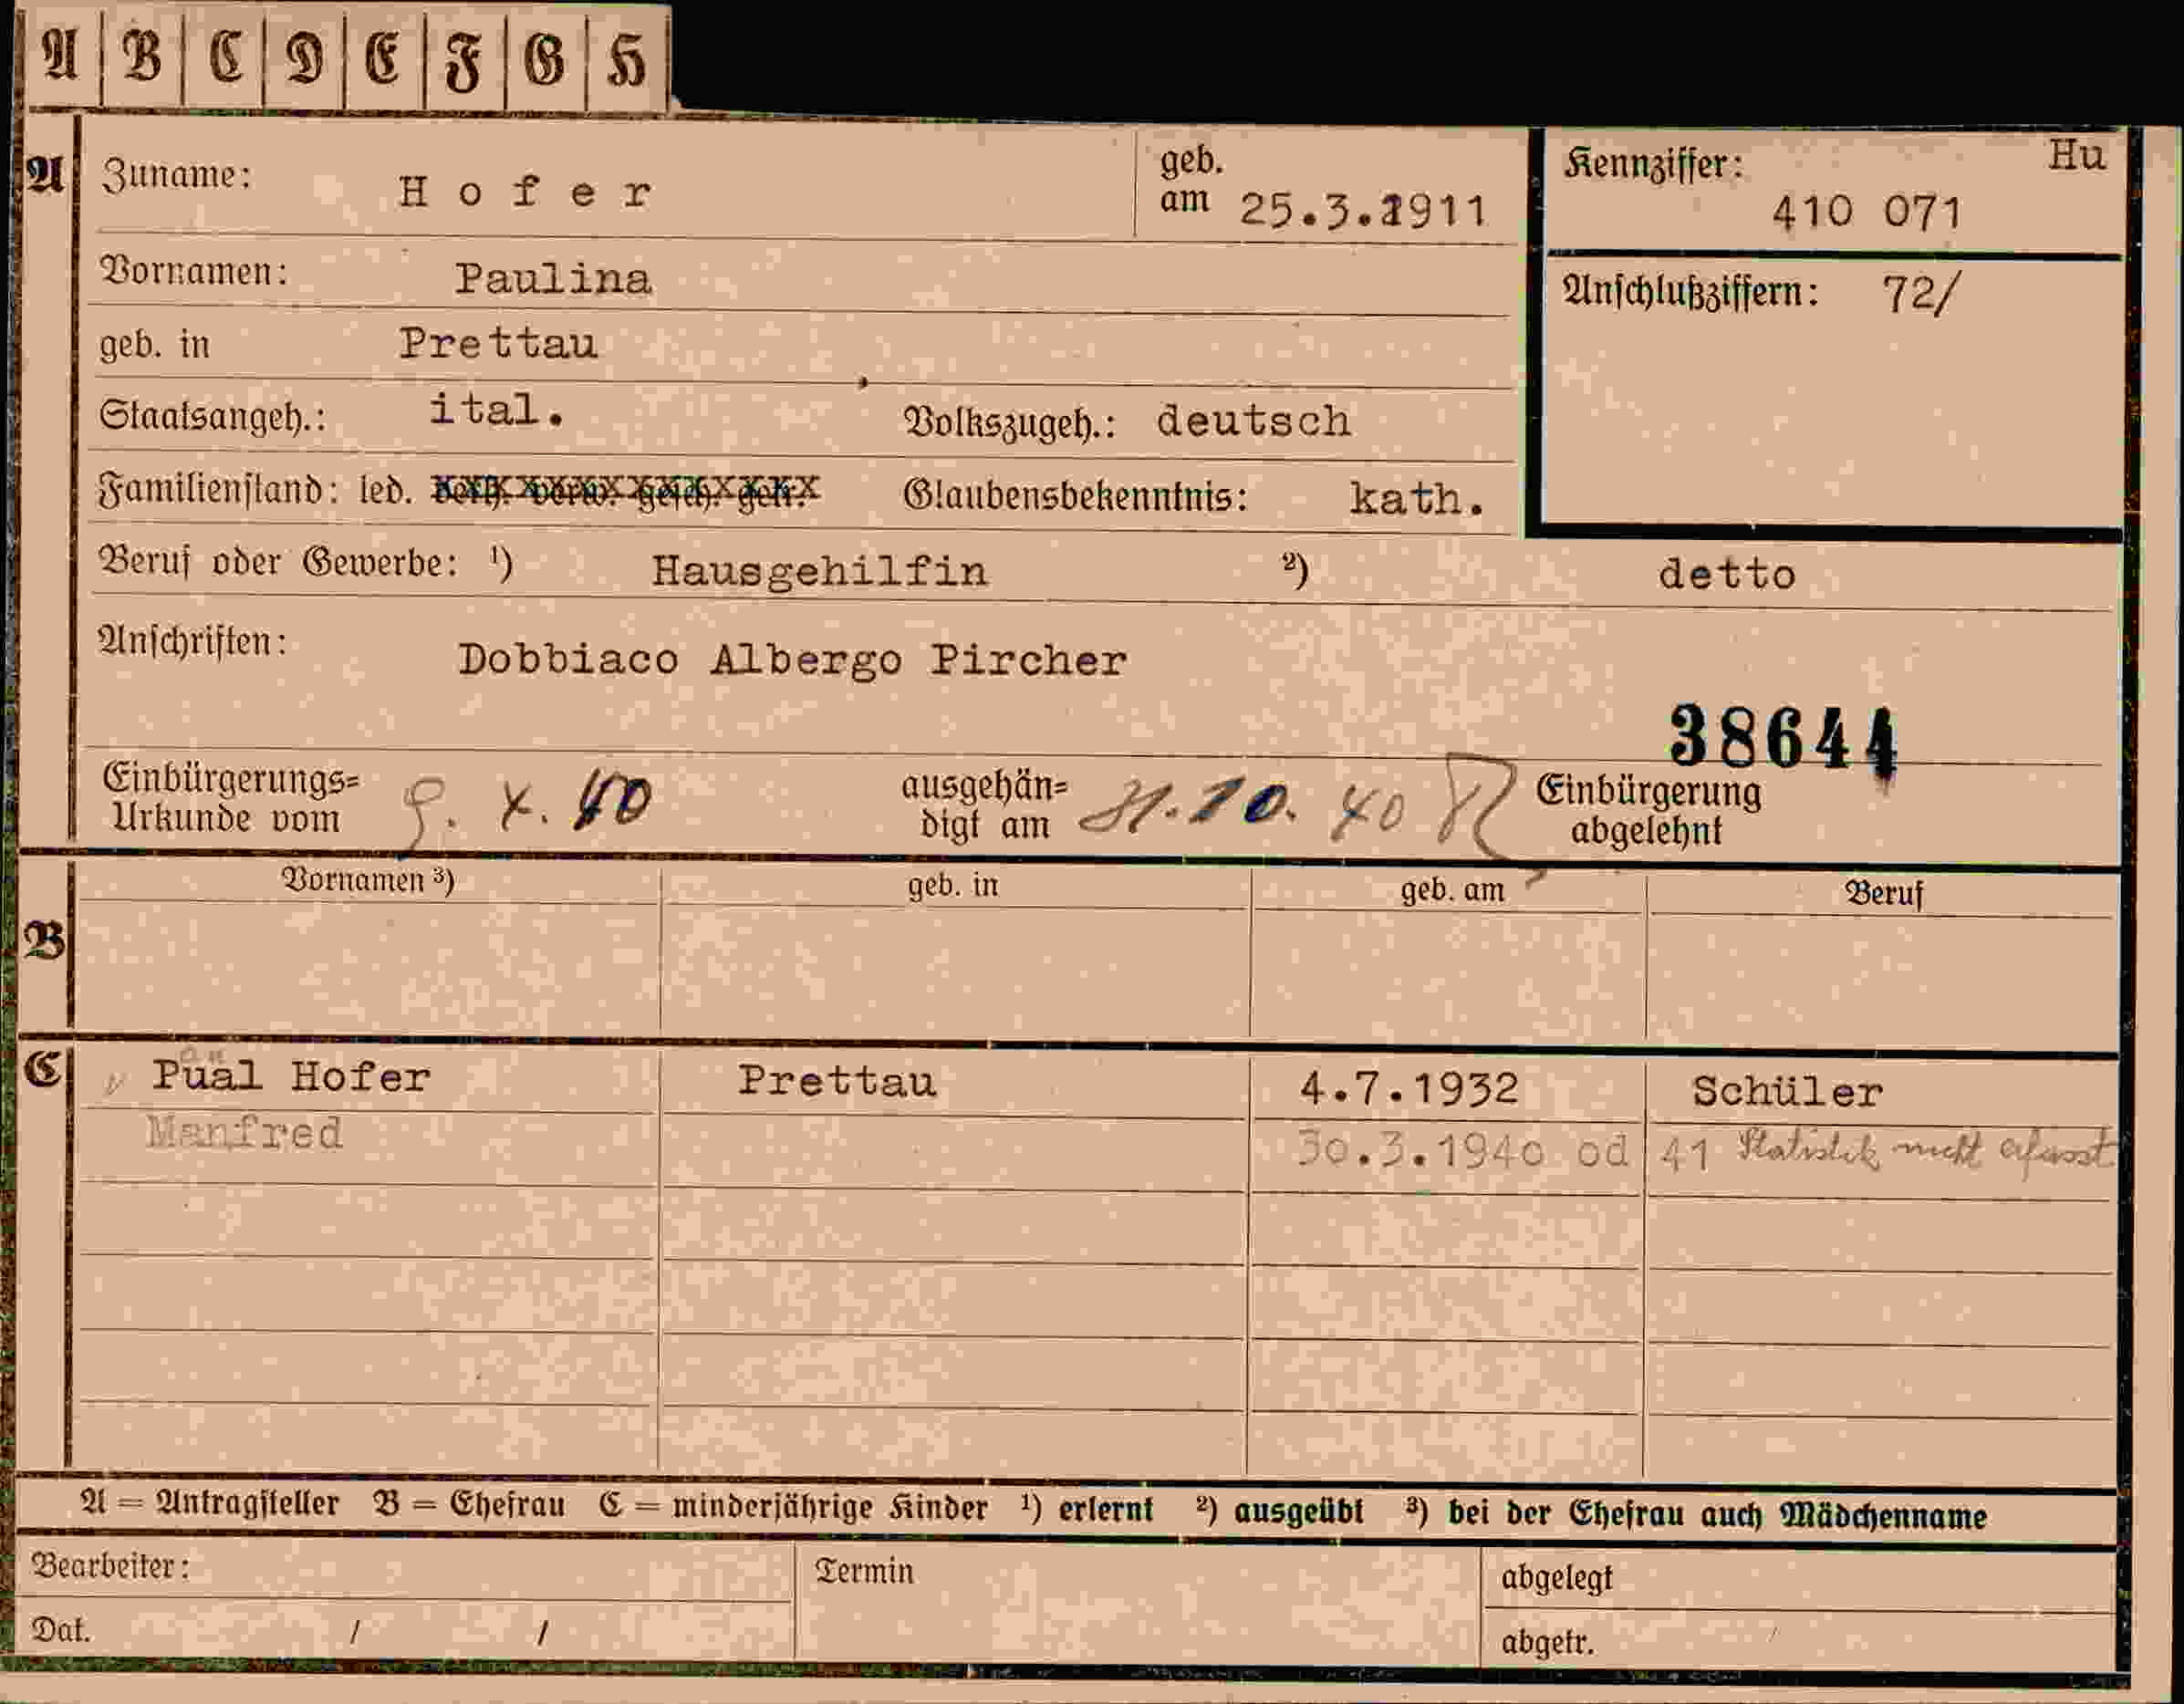 A B C D E F G H
A Zuname: Hofer geb. am 25.3.1911 Kennziffer: Hu 410 071
Vornamen: Paulina Anschlußziffern: 72/
geb. in Prettau
Staatsangeh.: ital. Volkszugeh.: deutsch
Familienstand: led. verh. verw. gesch. getr. Glaubensbekenntnis: kath.
Beruf oder Gewerbe: ¹) Hausgehilfin ²) detto
Anschriften: Dobbiaco Albergo Pircher
38644
Einbürgerungs= Urkunde vom 9. X. 40 ausgehän= digt am 31.10. 40 Einbürgerung abgelehnt
B Vornamen ³) geb. in geb. am Beruf
C Püal Hofer Prettau 4.7.1932 Schüler
Manfred 30.3.1940 od 41 Statistik nicht erfasst
A = Antragsteller B = Ehefrau C = minderjährige Kinder ¹) erlernt ²) ausgeübt ³) bei der Ehefrau auch Mädchenname
Bearbeiter: Termin abgelegt
Dat. / / abgetr.